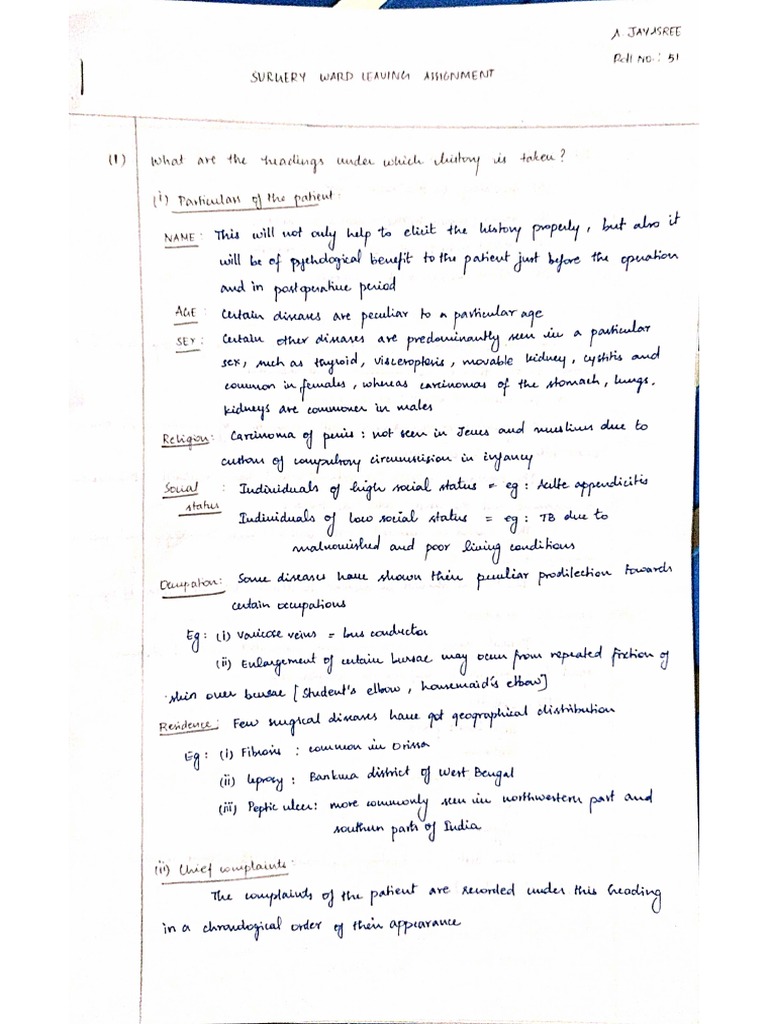 A JAYASREE
Roll No.: 51
SURGERY WARD LEAVING ASSIGNMENT
(1) What are the headings under which history is taken?
(i) Particulars of the patient:
NAME: This will not only help to elicit the history properly, but also it
will be of pyschological benefit to the patient just before the operation
and in postoperative period
AGE: Certain diseases are peculiar to a particular age
SEX: Certain other diseases are predominantly seen in a particular
sex, such as thyroid, visceroptosis, movable kidney, cystitis and
common in females, whereas carcinomas of the stomach, lungs,
kidneys are commoner in males
Religion: Carcinoma of penis: not seen in Jews and muslims due to
custom of compulsory circumscision in infancy
Social status : Individuals of high social status = eg: Acute appendicitis
Individuals of low social status = eg: TB due to
malnourished and poor living conditions
Occupation: Some diseases have shown their peculiar predilection towards
certain occupations
Eg: (i) Varicose veins = bus conductor
(ii) Enlargement of certain bursae may occur from repeated friction of
skin over bursae [Student's elbow, housemaid's elbow]
Residence: Few surgical diseases have got geographical distribution
Eg: (i) Fibrosis : common in Orissa
(ii) leprosy: Bankura district of West Bengal
(iii) Peptic ulcer: more commonly seen in northwestern part and
southern parts of India
(ii) Chief complaints:
The complaints of the patient are recorded under this heading
in a chronological order of their appearance